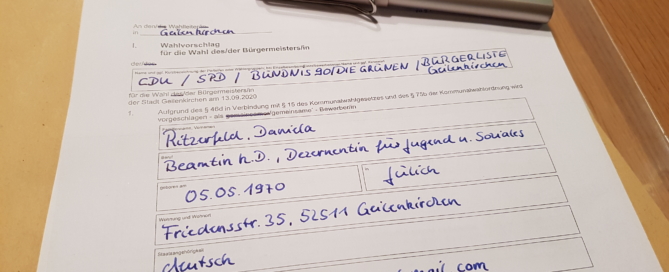 An den/die Wahlleiter/in
in Geilenkirchen
I. Wahlvorschlag
für die Wahl des/der Bürgermeisters/in
der/des
CDU / SPD / BÜNDNIS 90/DIE GRÜNEN / BÜRGERLISTE
Geilenkirchen
für die Wahl des/der Bürgermeisters/in
der Stadt Geilenkirchen am 13.09.2020
1. Aufgrund des § 46d in Verbindung mit § 15 des Kommunalwahlgesetzes und des § 75b der Kommunalwahlordnung wird
vorgeschlagen - als gemeinsame - Bewerber/in
Ritzerfeld, Daniela
Beamtin h.D., Dezernentin für Jugend u. Soziales
geboren am
in
05.05.1970
Jülich
Wohnung und Wohnort
Friedensstr. 35, 52511 Geilenkirchen
Staatsangehörigkeit
deutsch
mail.com